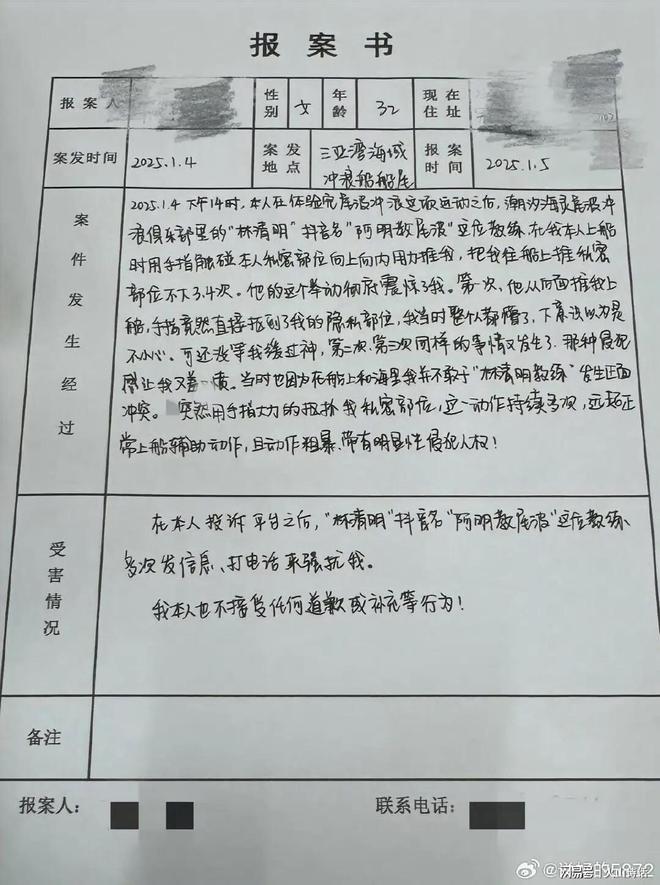 报案书
报案人 性别 女 年龄 32 现在住址
案发时间 2025.1.4 案发地点 三亚湾海域冲浪船船尾 报案时间 2025.1.5
案件发生经过
2025.1.4 下午14时,本人在体验完尾波冲浪这项运动之后,潮汐海灵尾波冲
浪俱乐部里的“林清明”抖音名“阿明教尾波”这位教练,在我本人上船
时用手指触碰本人私密部位向上向内用力推我,把我往船上推私密
部位不下3,4次。他的这个举动彻底震惊了我。第一次,他从后面推我上
船,手指竟然直接抵到了我的隐私部位,我当时整个人都懵了,下意识以为是
不小心。可还没等我缓过神,第二次、第三次同样的事情又发生了,那种侵犯
感让我又羞 愤。当时也因为在船上和海里我并不敢于“林清明教练”发生正面
冲突。 突然用手指大力的 我私密部位,这一动作持续多次,远超正
常上船辅助动作,且动作粗暴、带有明显性侵犯人权!
受害情况
在本人投诉平台之后,“林清明”抖音名“阿明教尾波”这位教练,
多次发信息、打电话来骚扰我。
我本人也不接受任何道歉或补充等行为!
备注
报案人: 联系电话: